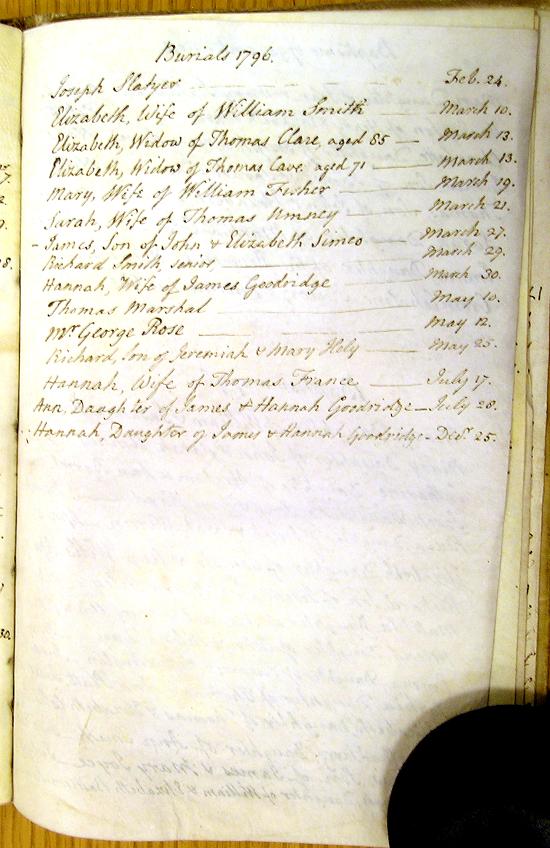 Burials 1796.
Joseph Slatyer Feb. 24.
Elizabeth, Wife of William Smith March 10.
Elizabeth, Widow of Thomas Clare, aged 85 — March 13.
Elizabeth, Widow of Thomas Cave, aged 71 — March 13.
Mary, Wife of William Fisher March 19.
Sarah, Wife of Thomas Umney March 21.
James, Son of John & Elizabeth Simeo March 27.
Richard Smith, senior, March 29.
Hannah, Wife of James Goodridge March 30.
Thomas Marshal May 10.
Mr. George Rose May 12.
Richard, Son of Jeremiah & Mary Hely May 25.
Hannah, Wife of Thomas France July 17.
Ann, Daughter of James & Hannah Goodridge — July 28.
Hannah, Daughter of James & Hannah Goodridge - Decr. 25.